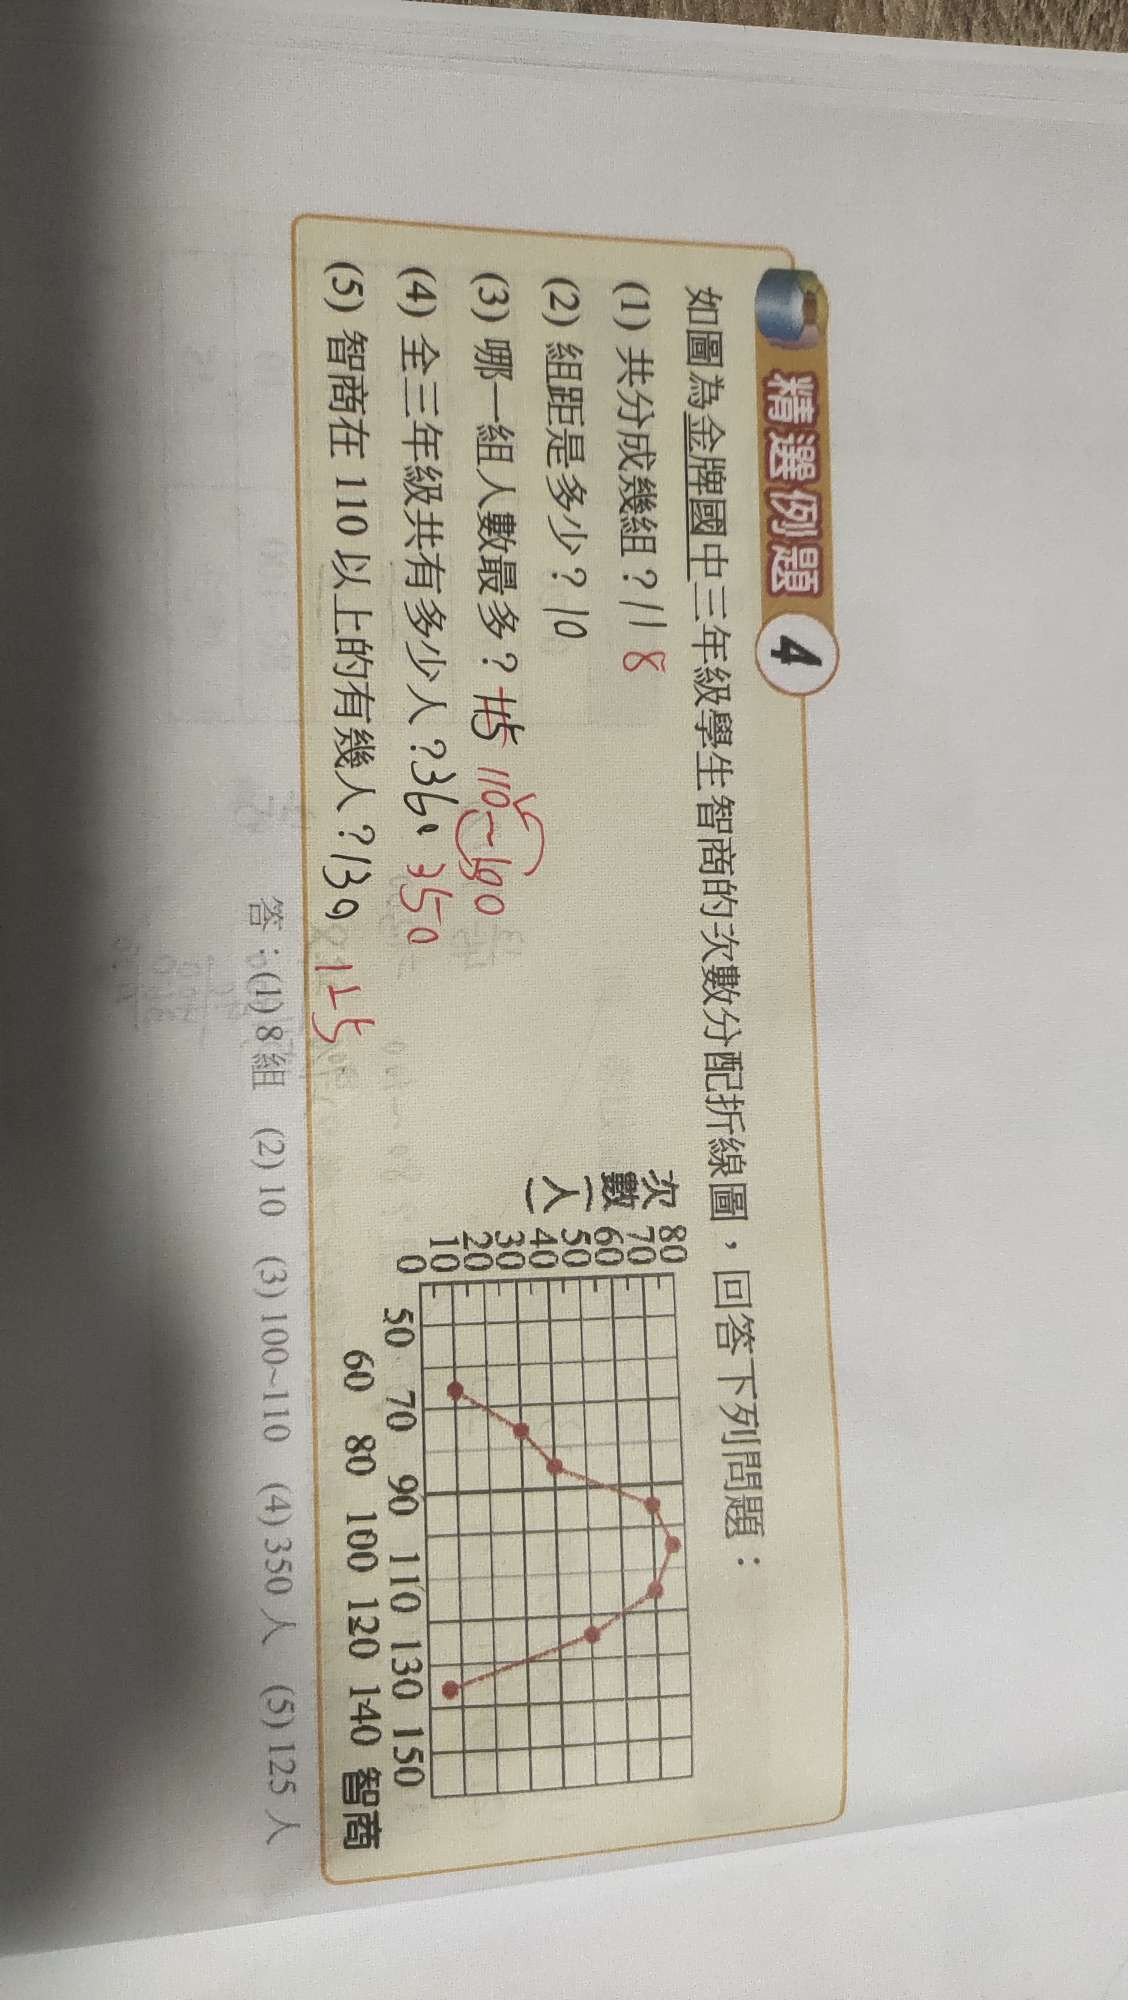 精選例題 4
如圖為金牌國中三年級學生智商的次數分配折線圖，回答下列問題：
(1) 共分成幾組？11 8
(2) 組距是多少？10
(3) 哪一組人數最多？115 110~100
(4) 全三年級共有多少人？360 350
(5) 智商在 110 以上的有幾人？139 125
次數（人）
80
70
60
50
40
30
20
10
0
50 70 90 110 130 150
60 80 100 120 140 智商
答：(1) 8 組 (2) 10 (3) 100~110 (4) 350 人 (5) 125 人